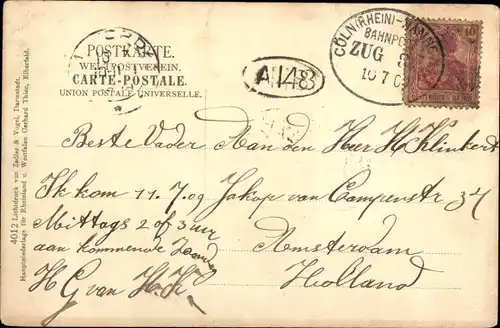 POSTKARTE.
WELTPOSTVEREIN.
CARTE-POSTALE.
UNION POSTALE UNIVERSELLE.
BAHNPOST
ZUG 2
10 7 0
10
A 148
4012 Lichtdruck von Zedler & Vogel, Darmstadt.
Hauptniederlage für Rheinland u. Westfalen Gerhard Thien, Elberfeld.
Beste Vader
Ik kom 11.7.09
Mittags 2 of 3 uur
aan kommende
H G van H.K.
Aan den Heer H Klinkert
Jakop van Campenstr 34
Amsterdam
Holland